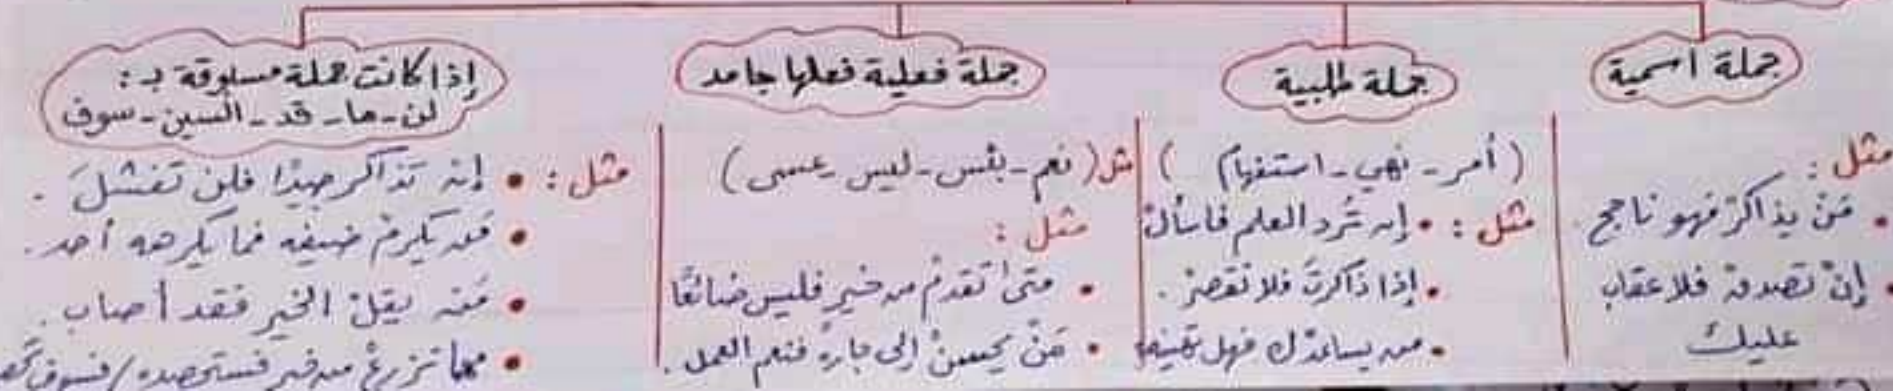 جملة اسمية
مثل :
• مَنْ يذاكرْ فهو ناجح
• إنْ تصدقْ فلا عقاب
عليك
جملة طلبية
( أمر - نهي - استفهام )
مثل : • إن تُرد العلم فاسألْ
• إذا ذاكرتَ فلا تقصرْ .
• من يساعدْك فهل
جملة فعلية فعلها جامد
مثل ( نعم - بئس - ليس - عسى )
مثل :
• متى تقدمْ من خير فليس ضائعًا
• مَنْ يحسنْ إلى جاره فنعم العمل .
إذا كانت جملة مسبوقة بـ :
لن - ما - قد - السين - سوف
مثل : • إن تذاكر جيدًا فلن تفشلَ .
• من يكرمْ ضيفه فما يكرهه أحد .
• مَن يقلْ الخير فقد أصاب .
• مهما تزرعْ من خير فستحصده / فسوف